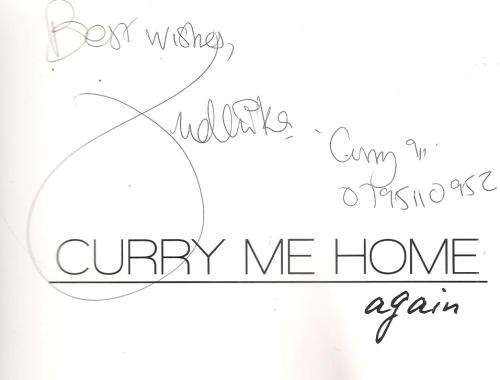 Best wishes,
Curry
0795110952
CURRY ME HOME
again